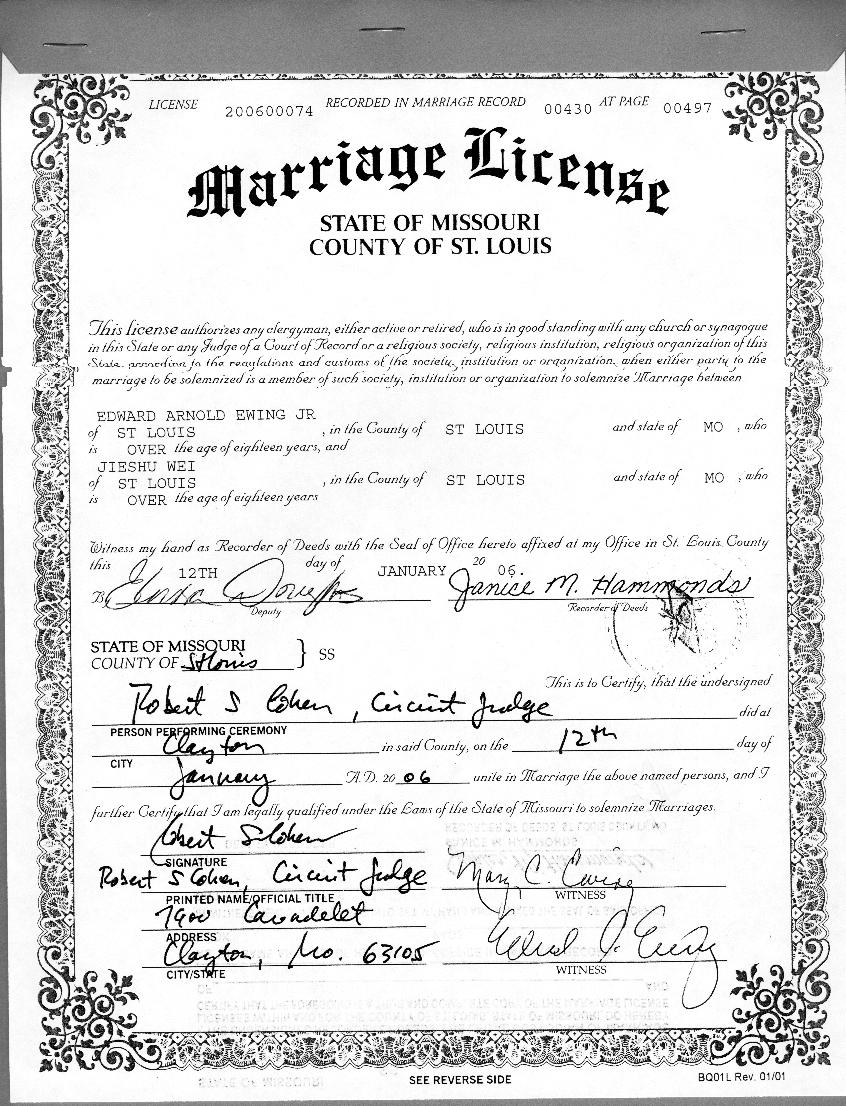 LICENSE 200600074 RECORDED IN MARRIAGE RECORD 00430 AT PAGE 00497
Marriage License
STATE OF MISSOURI
COUNTY OF ST. LOUIS
This license authorizes any clergyman, either active or retired, who is in good standing with any church or synagogue
in this State or any Judge of a Court of Record or a religious society, religious institution, religious organization of this
State, according to the regulations and customs of the society, institution or organization, when either party to the
marriage to be solemnized is a member of such society, institution or organization to solemnize Marriage between
EDWARD ARNOLD EWING JR
of ST LOUIS , in the County of ST LOUIS and state of MO , who
is OVER the age of eighteen years, and
JIESHU WEI
of ST LOUIS , in the County of ST LOUIS and state of MO , who
is OVER the age of eighteen years
Witness my hand as Recorder of Deeds with the Seal of Office hereto affixed at my Office in St. Louis County
this 12TH day of JANUARY 20 06.
By Janice M. Hammonds
Deputy Recorder of Deeds
STATE OF MISSOURI
COUNTY OF St Louis } SS
This is to Certify, that the undersigned
Robert S Cohen, Circuit Judge did at
PERSON PERFORMING CEREMONY
Clayton in said County, on the 12th day of
CITY
January A.D. 20 06 unite in Marriage the above named persons, and I
further Certify that I am legally qualified under the Laws of the State of Missouri to solemnize Marriages.
Robert S Cohen
SIGNATURE
Robert S Cohen, Circuit Judge Mary C.
PRINTED NAME/OFFICIAL TITLE WITNESS
7900 Carondelet
ADDRESS
Clayton, Mo. 63105
CITY/STATE WITNESS
SEE REVERSE SIDE
BQ01L Rev. 01/01